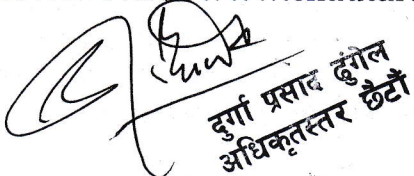 दुर्गा प्रसाद ढुंगेल
अधिकृतस्तर छैटौं